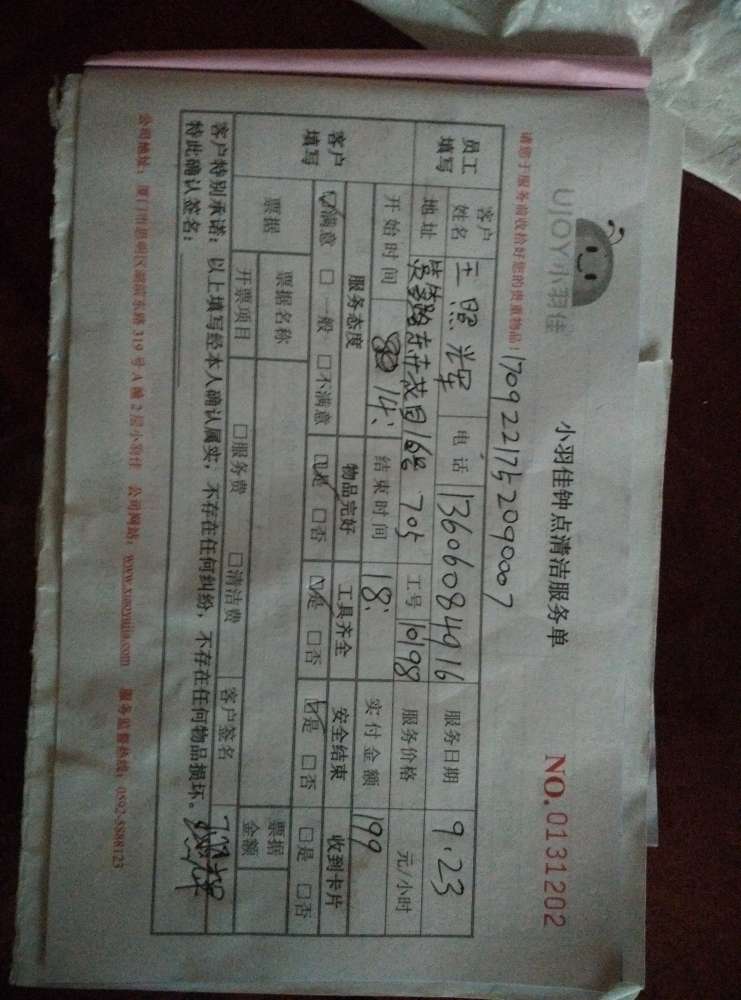 UJOY小羽佳
小羽佳钟点清洁服务单
NO.0131202
请您于服务前收拾好您的贵重物品!
1709221752090007
员工填写 客户姓名 电话 13606084916 服务日期 9.23
地址 705 工号 10198 服务价格 元/小时
开始时间 14: 结束时间 18: 实付金额 199
客户填写 服务态度 物品完好 工具齐全 安全结束 收到卡片
☑满意 □一般 □不满意 ☑是 □否 ☑是 □否 ☑是 □否 □是 □否
票据 票据名称 票据金额
开票项目 □服务费 □清洁费 客户签名
客户特别承诺:以上填写经本人确认属实,不存在任何纠纷,不存在任何物品损坏。
特此确认签名:
公司地址:厦门市思明区湖滨东路319号A幢2层小羽佳 公司网站:www.xiaoyujia.com 服务监督热线:0592-5888123